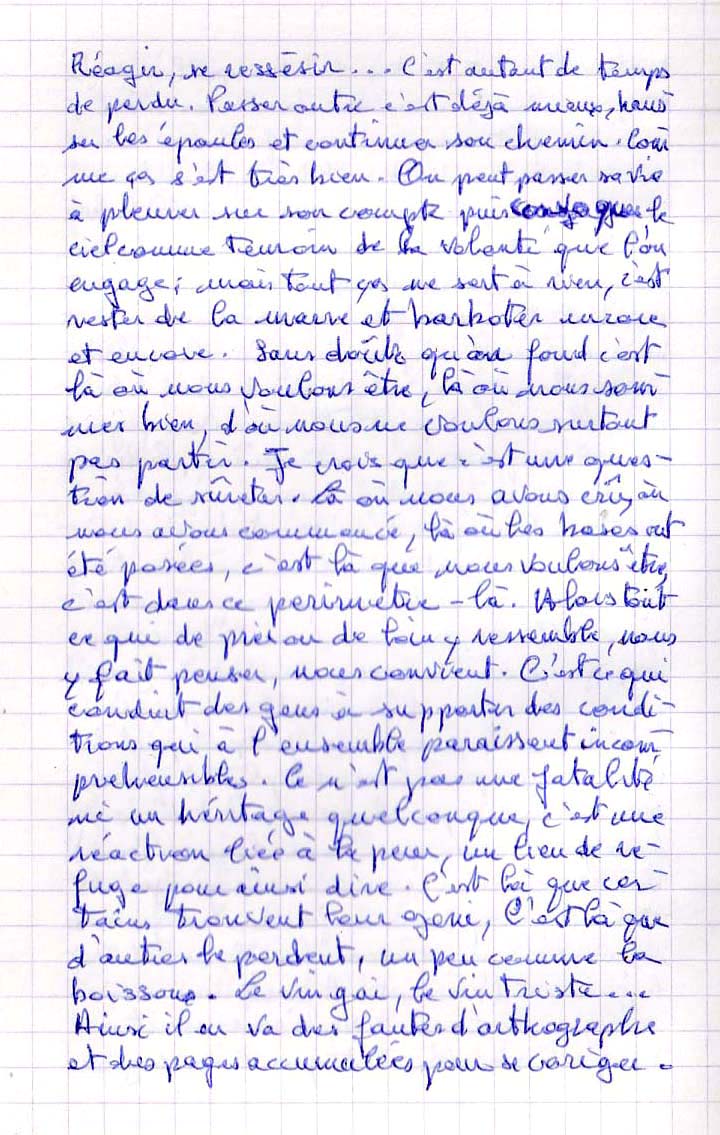 Réagir, se ressésir... C'est autant de temps
de perdu. Passer outre c'est déjà mieux, haus
ser les épaules et continuer son chemin. Com
me ça s'est très bien. On peut passer sa vie
à pleurer sur son compte puis le
ciel comme témoin de la volonté que l'on
engage; mais tout ça ne sert à rien, c'est
rester de la marre et barboter encore
et encore. Sans doute qu'au fond c'est
là où nous voulons être, là où nous som
mes bien, d'où nous ne voulons surtout
pas partir. Je crois que c'est une ques-
tion de sûreter. Là où nous avons crû, où
nous avons commencé, là où les bases ont
été posées, c'est là que nous voulons être,
c'est dans ce périmètre-là. Alors tout
ce qui de près ou de loin y ressemble, nous
y fait penser, nous convient. C'est ce qui
conduit des gens à supporter des condi-
tions qui à l'ensemble paraissent incom
préhensibles. Ce n'est pas une fatalité
ni un héritage quelconque, c'est une
réaction liée à la peur, un lieu de re-
fuge pour ainsi dire. C'est là que cer-
tains trouvent leur génie, C'est là que
d'autres le perdent, un peu comme la
boisson. Le vin gai, le vin triste...
Ainsi il en va des fautes d'orthographe
et des pages accumulées pour se coriger.